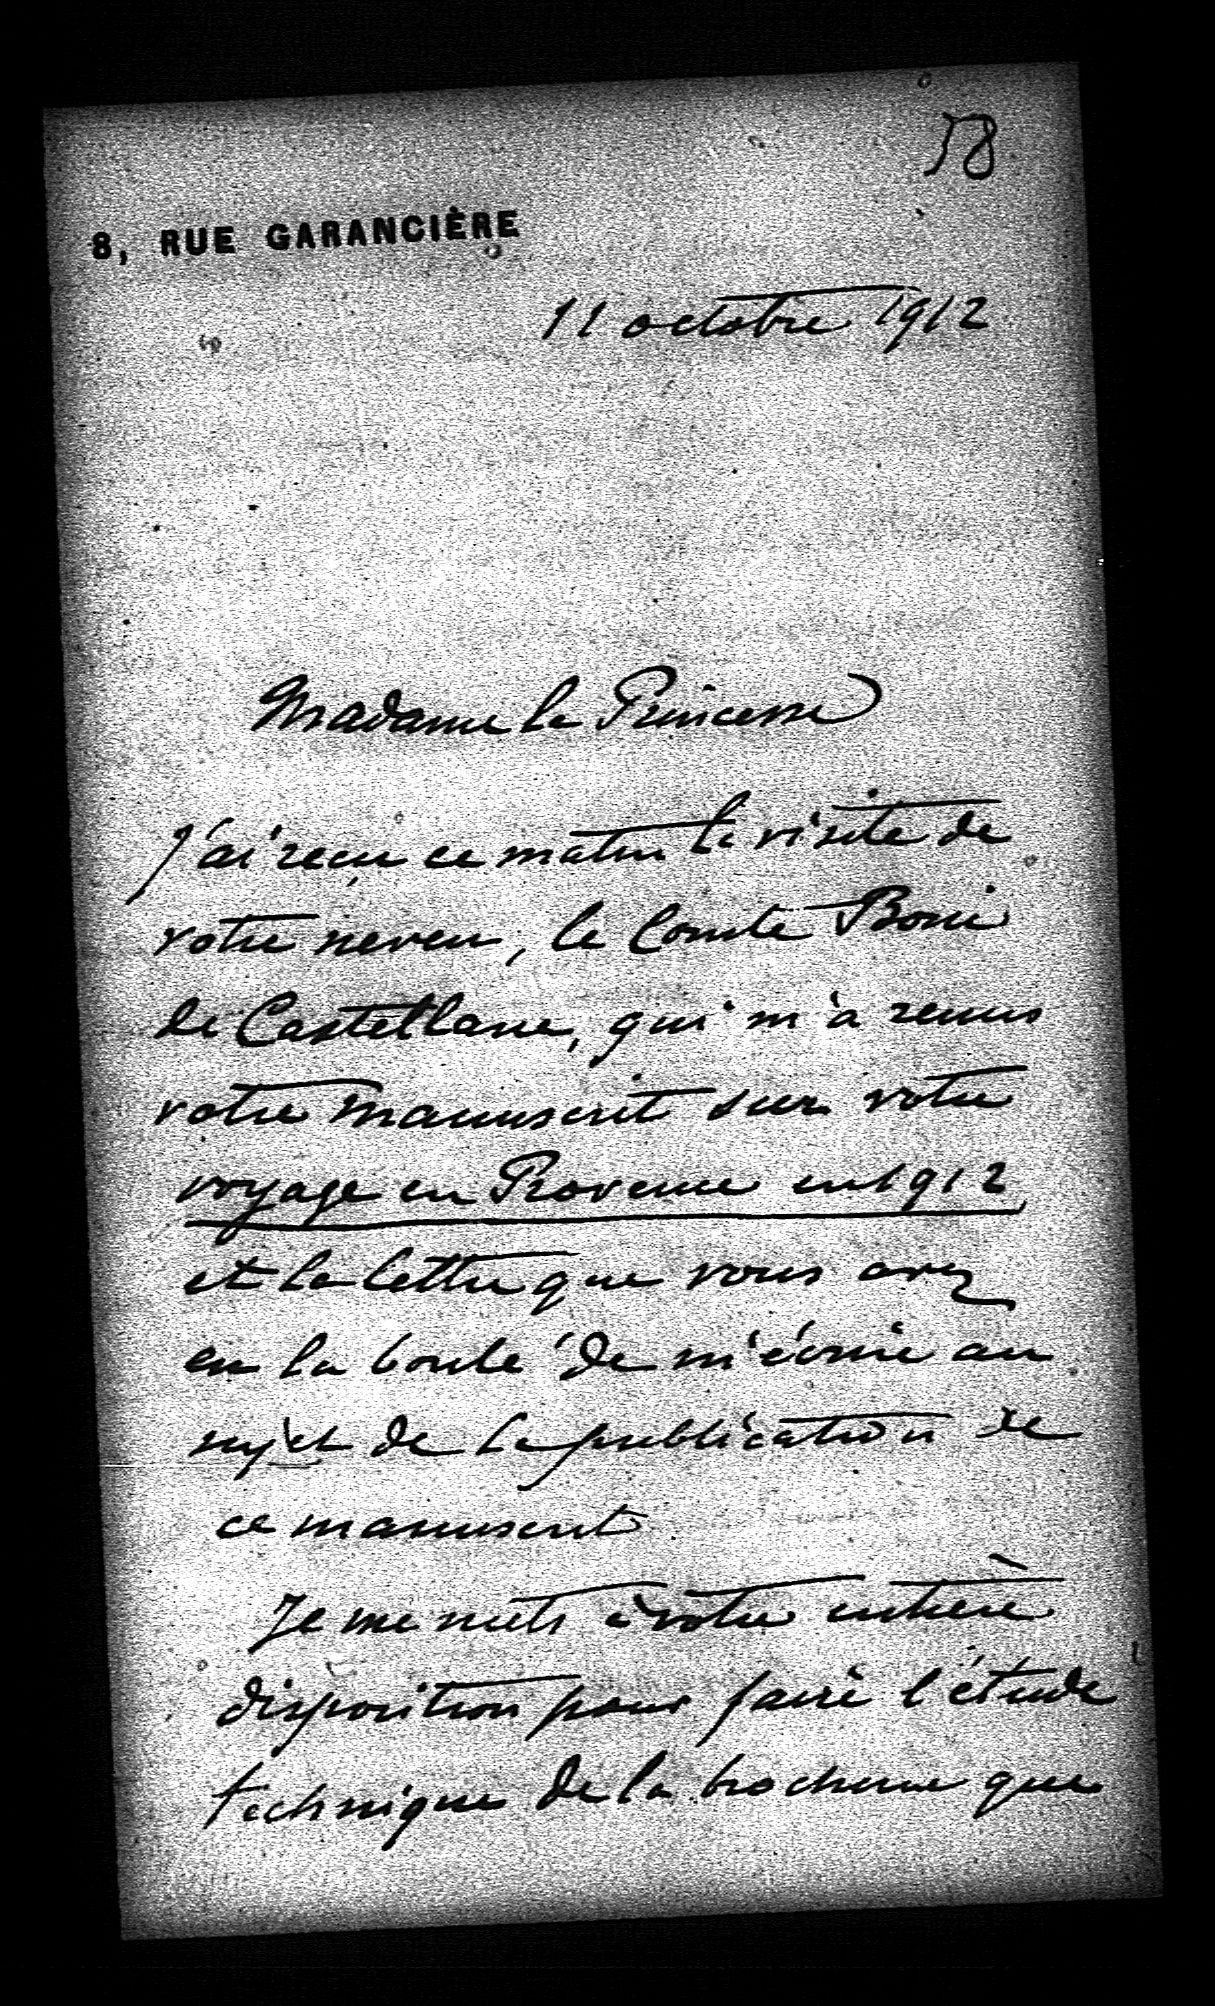 58
8, RUE GARANCIÈRE
11 octobre 1912
Madame la Princesse
J'ai reçu ce matin la visite de
votre neveu, le Comte Boni
de Castellane, qui m'a remis
votre manuscrit sur votre
voyage en Provence en 1912,
et la lettre que vous avez
eu la bonté de m'écrire au
sujet de la publication de
ce manuscrit.
Je me mets à votre entière
disposition pour faire l'étude
technique de la brochure que